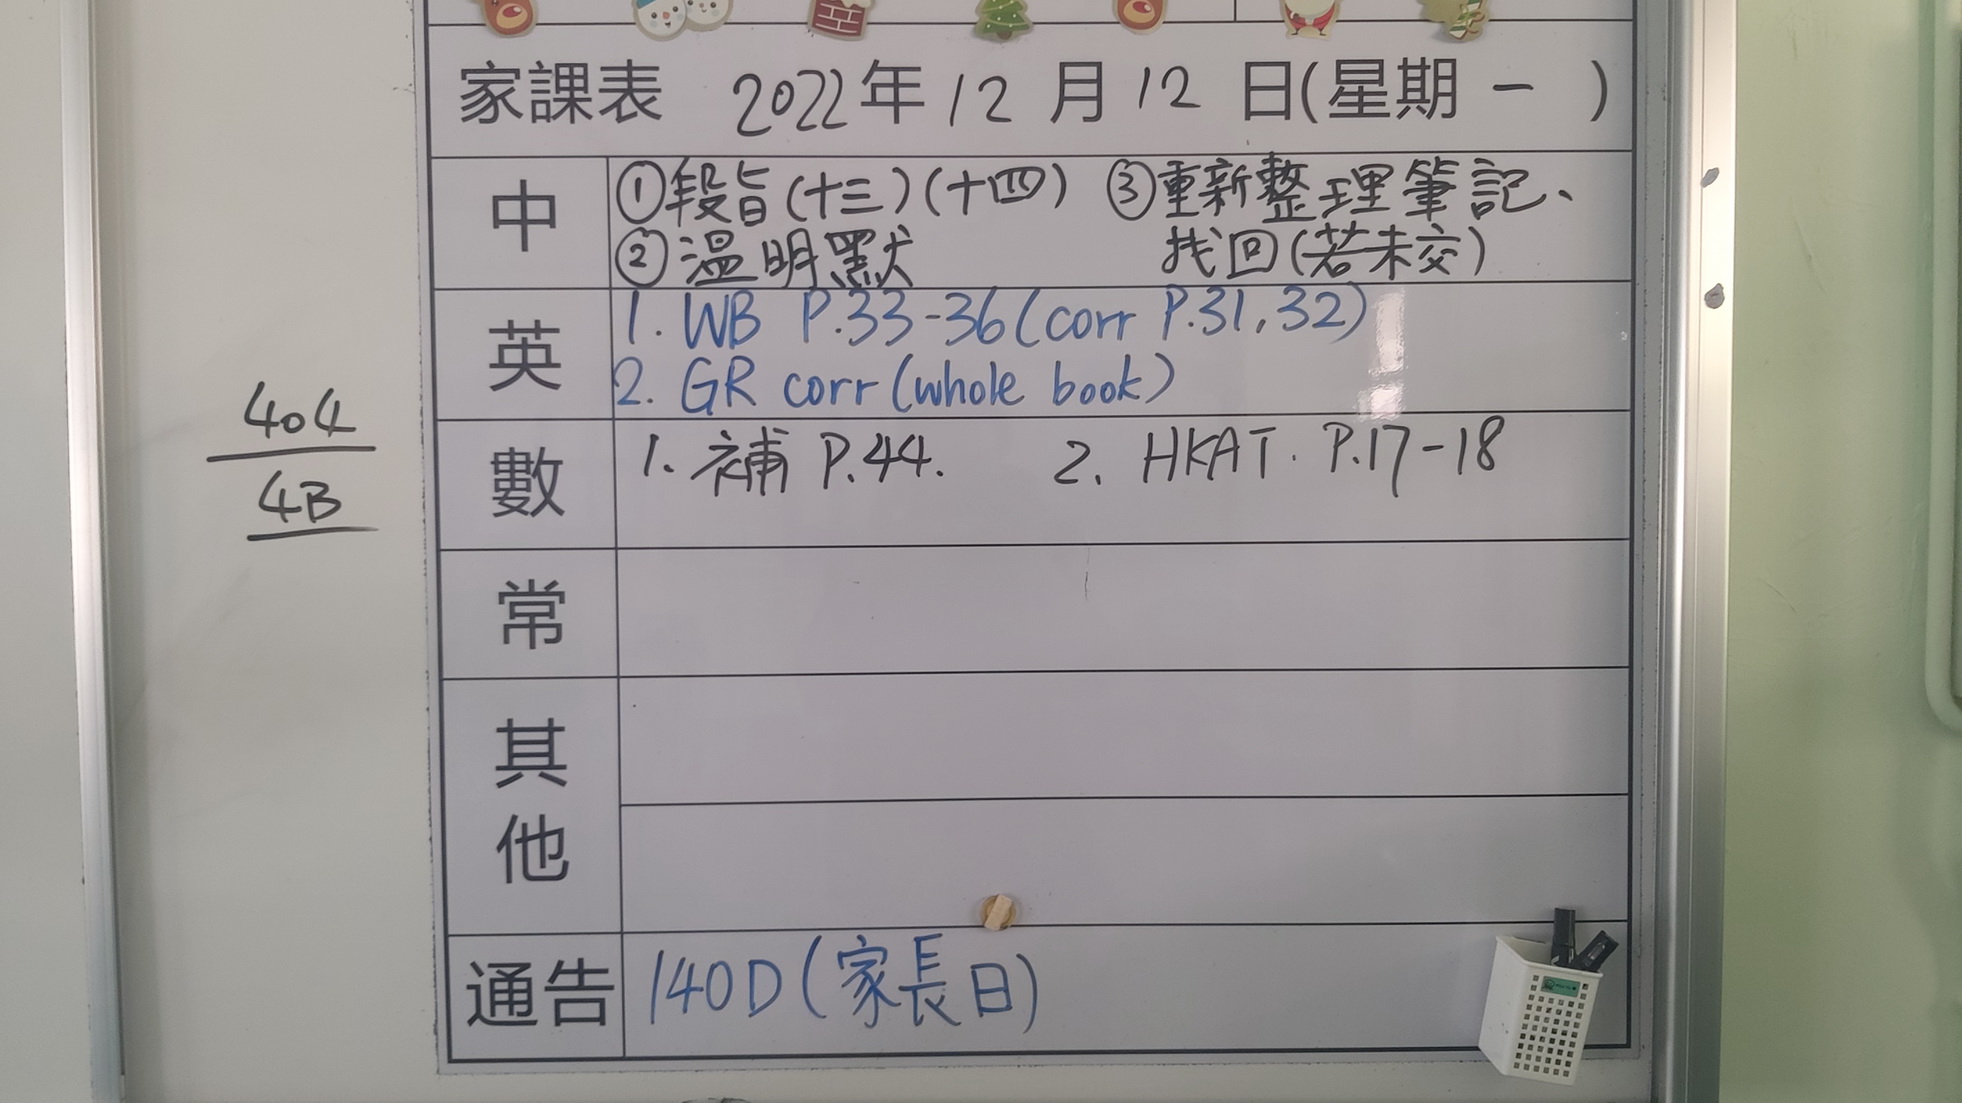 家課表 2022年 12 月 12 日(星期 一 )
中 ①段旨(十三)(十四) ③重新整理筆記、
②溫明默 找回(若未交)
英 1. WB P.33-36(corr P.31,32)
2. GR corr(whole book)
數 1. 補 P.44. 2. HKAT. P.17-18
常
其他
通告 140D(家長日)
404
4B